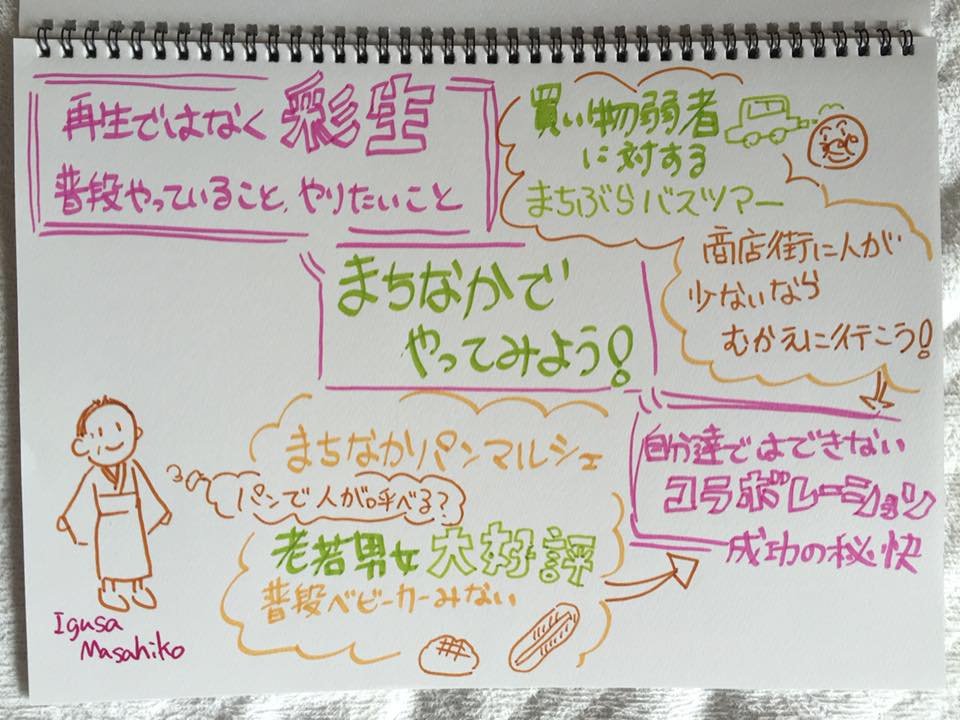 再生ではなく彩生
普段やっていること、やりたいこと
買い物弱者
に対する
まちぶらバスツアー
商店街に人が
少ないなら
むかえに行こう!
まちなかで
やってみよう!
まちなかパンマルシェ
パンで人が呼べる?
老若男女大好評
普段ベビーカーみない
自分達ではできない
コラボレーション
成功の秘快
Igusa
Masahiko